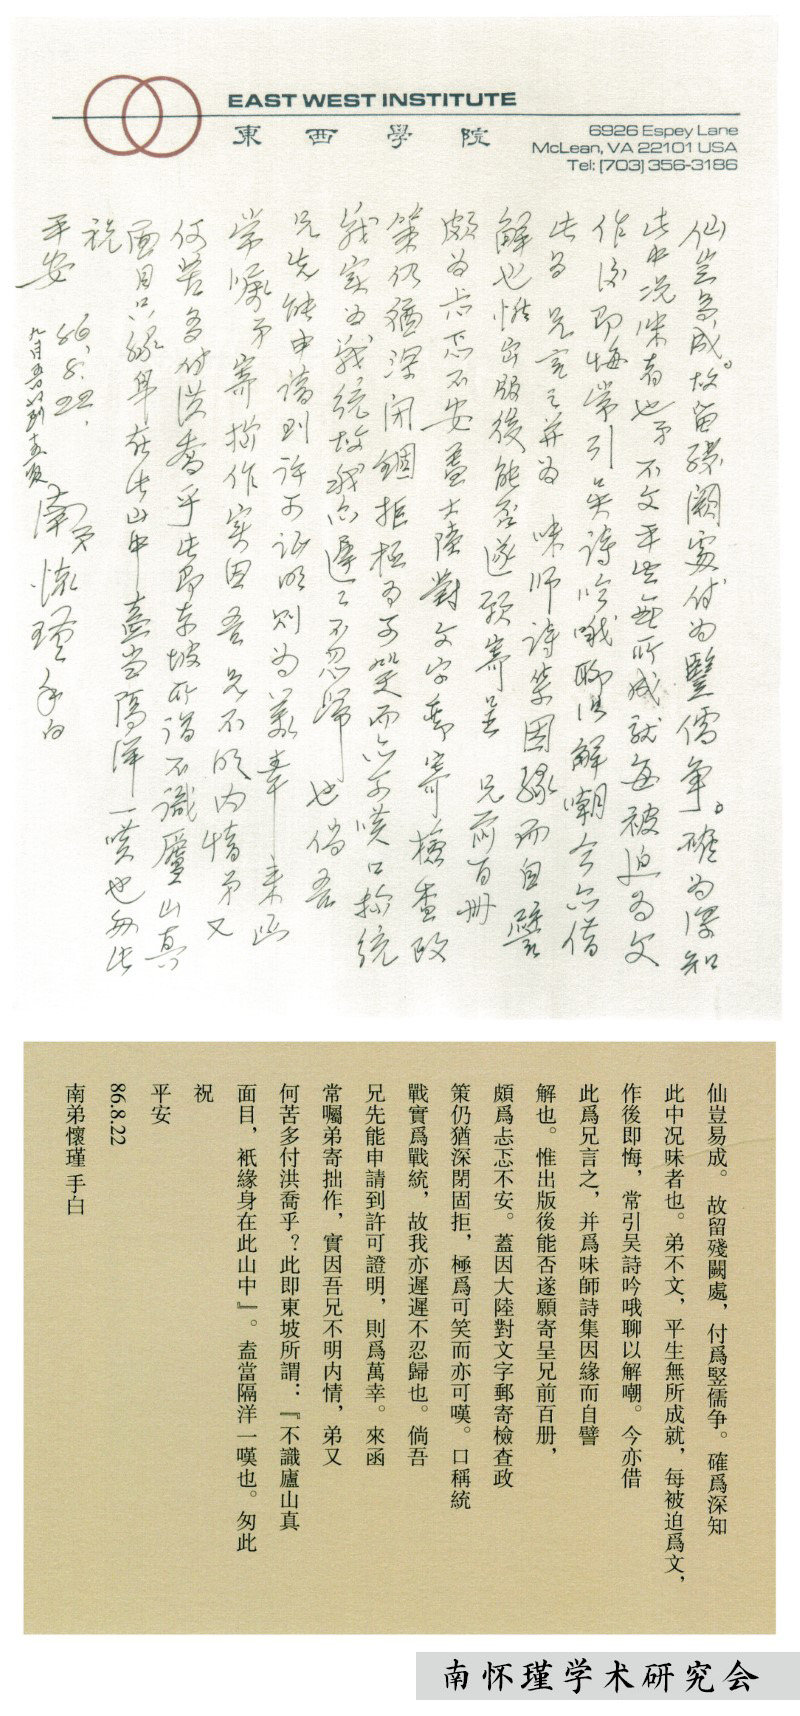 EAST WEST INSTITUTE
東西學院
6926 Espey Lane
McLean, VA 22101 USA
Tel: (703) 356-3186
仙豈易成。故留殘闕處付为豎儒争。確为深知
此中况味者也弟不文平生無所成就每被迫为文
作後即悔常引吴詩吟哦聊以解嘲今亦借
此为兄言之并为味師詩集因缘而自譬
解也惟出版後能否遂願寄呈兄前百册
頗为忐忑不安蓋大陸對文字郵寄檢查政
策仍猶深闭錮拒極为可笑而亦可嘆口称統
戰实为戰統故我亦遲遲不忍歸也倘吾
兄先能申請到许可证明则为萬幸 来函
常嘱弟寄拙作实因吾兄不明内情弟又
何苦多付洪喬乎此即东坡所谓不識廬山真
面目只缘身在此山中盍当隔洋一嘆也匆此
祝
平安
86.8.22.
南弟懷瑾手白
仙豈易成。故留殘闕處，付爲竪儒争。確爲深知
此中况味者也。弟不文，平生無所成就，每被迫爲文，
作後即悔，常引吴詩吟哦聊以解嘲。今亦借
此爲兄言之，并爲味師詩集因緣而自譬
解也。惟出版後能否遂願寄呈兄前百册，
頗爲忐忑不安。蓋因大陸對文字郵寄檢查政
策仍猶深閉固拒，極爲可笑而亦可嘆。口稱統
戰實爲戰統，故我亦遲遲不忍歸也。倘吾
兄先能申請到許可證明，則爲萬幸。來函
常囑弟寄拙作，實因吾兄不明内情，弟又
何苦多付洪喬乎？此即東坡所謂：『不識廬山真
面目，祇緣身在此山中』。盍當隔洋一嘆也。匆此
祝
平安
86.8.22
南弟懷瑾 手白
南怀瑾学术研究会